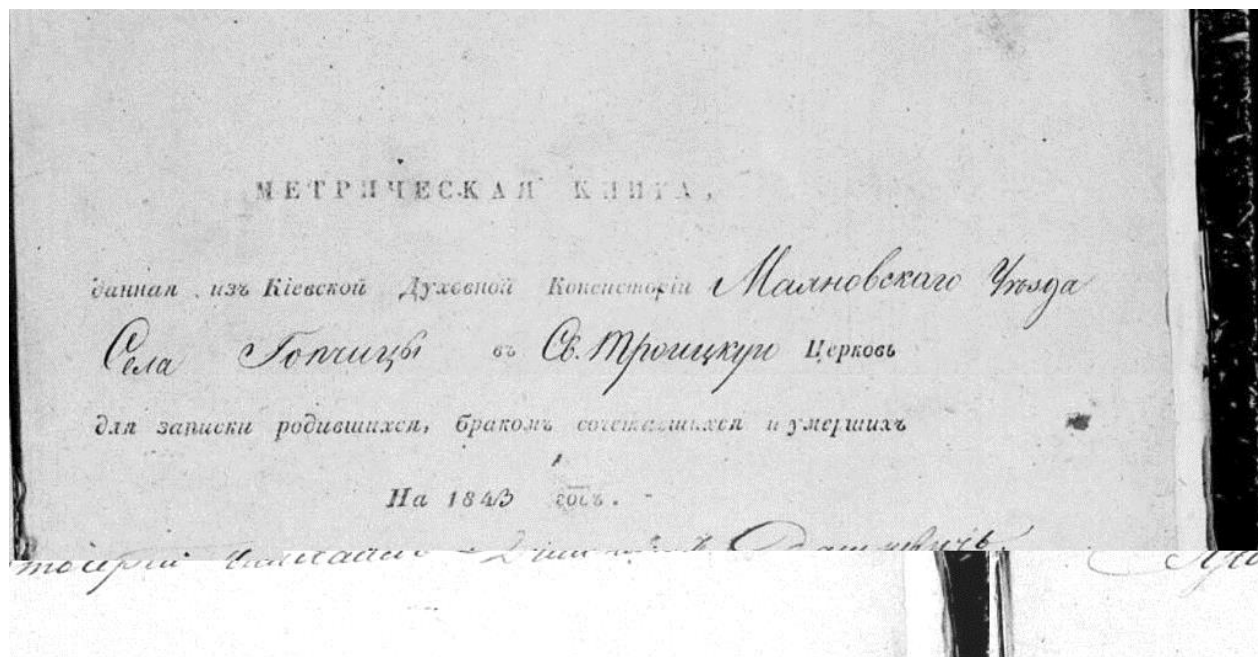 МЕТРИЧЕСКАЯ КНИГА,
данная изъ Кіевской Духовной Консисторіи Махновскаго Уѣзда
Села Гопчицы въ Св. Троицкую Церковь
для записки родившихся, бракомъ сочетавшихся и умершихъ
На 1843 годъ.